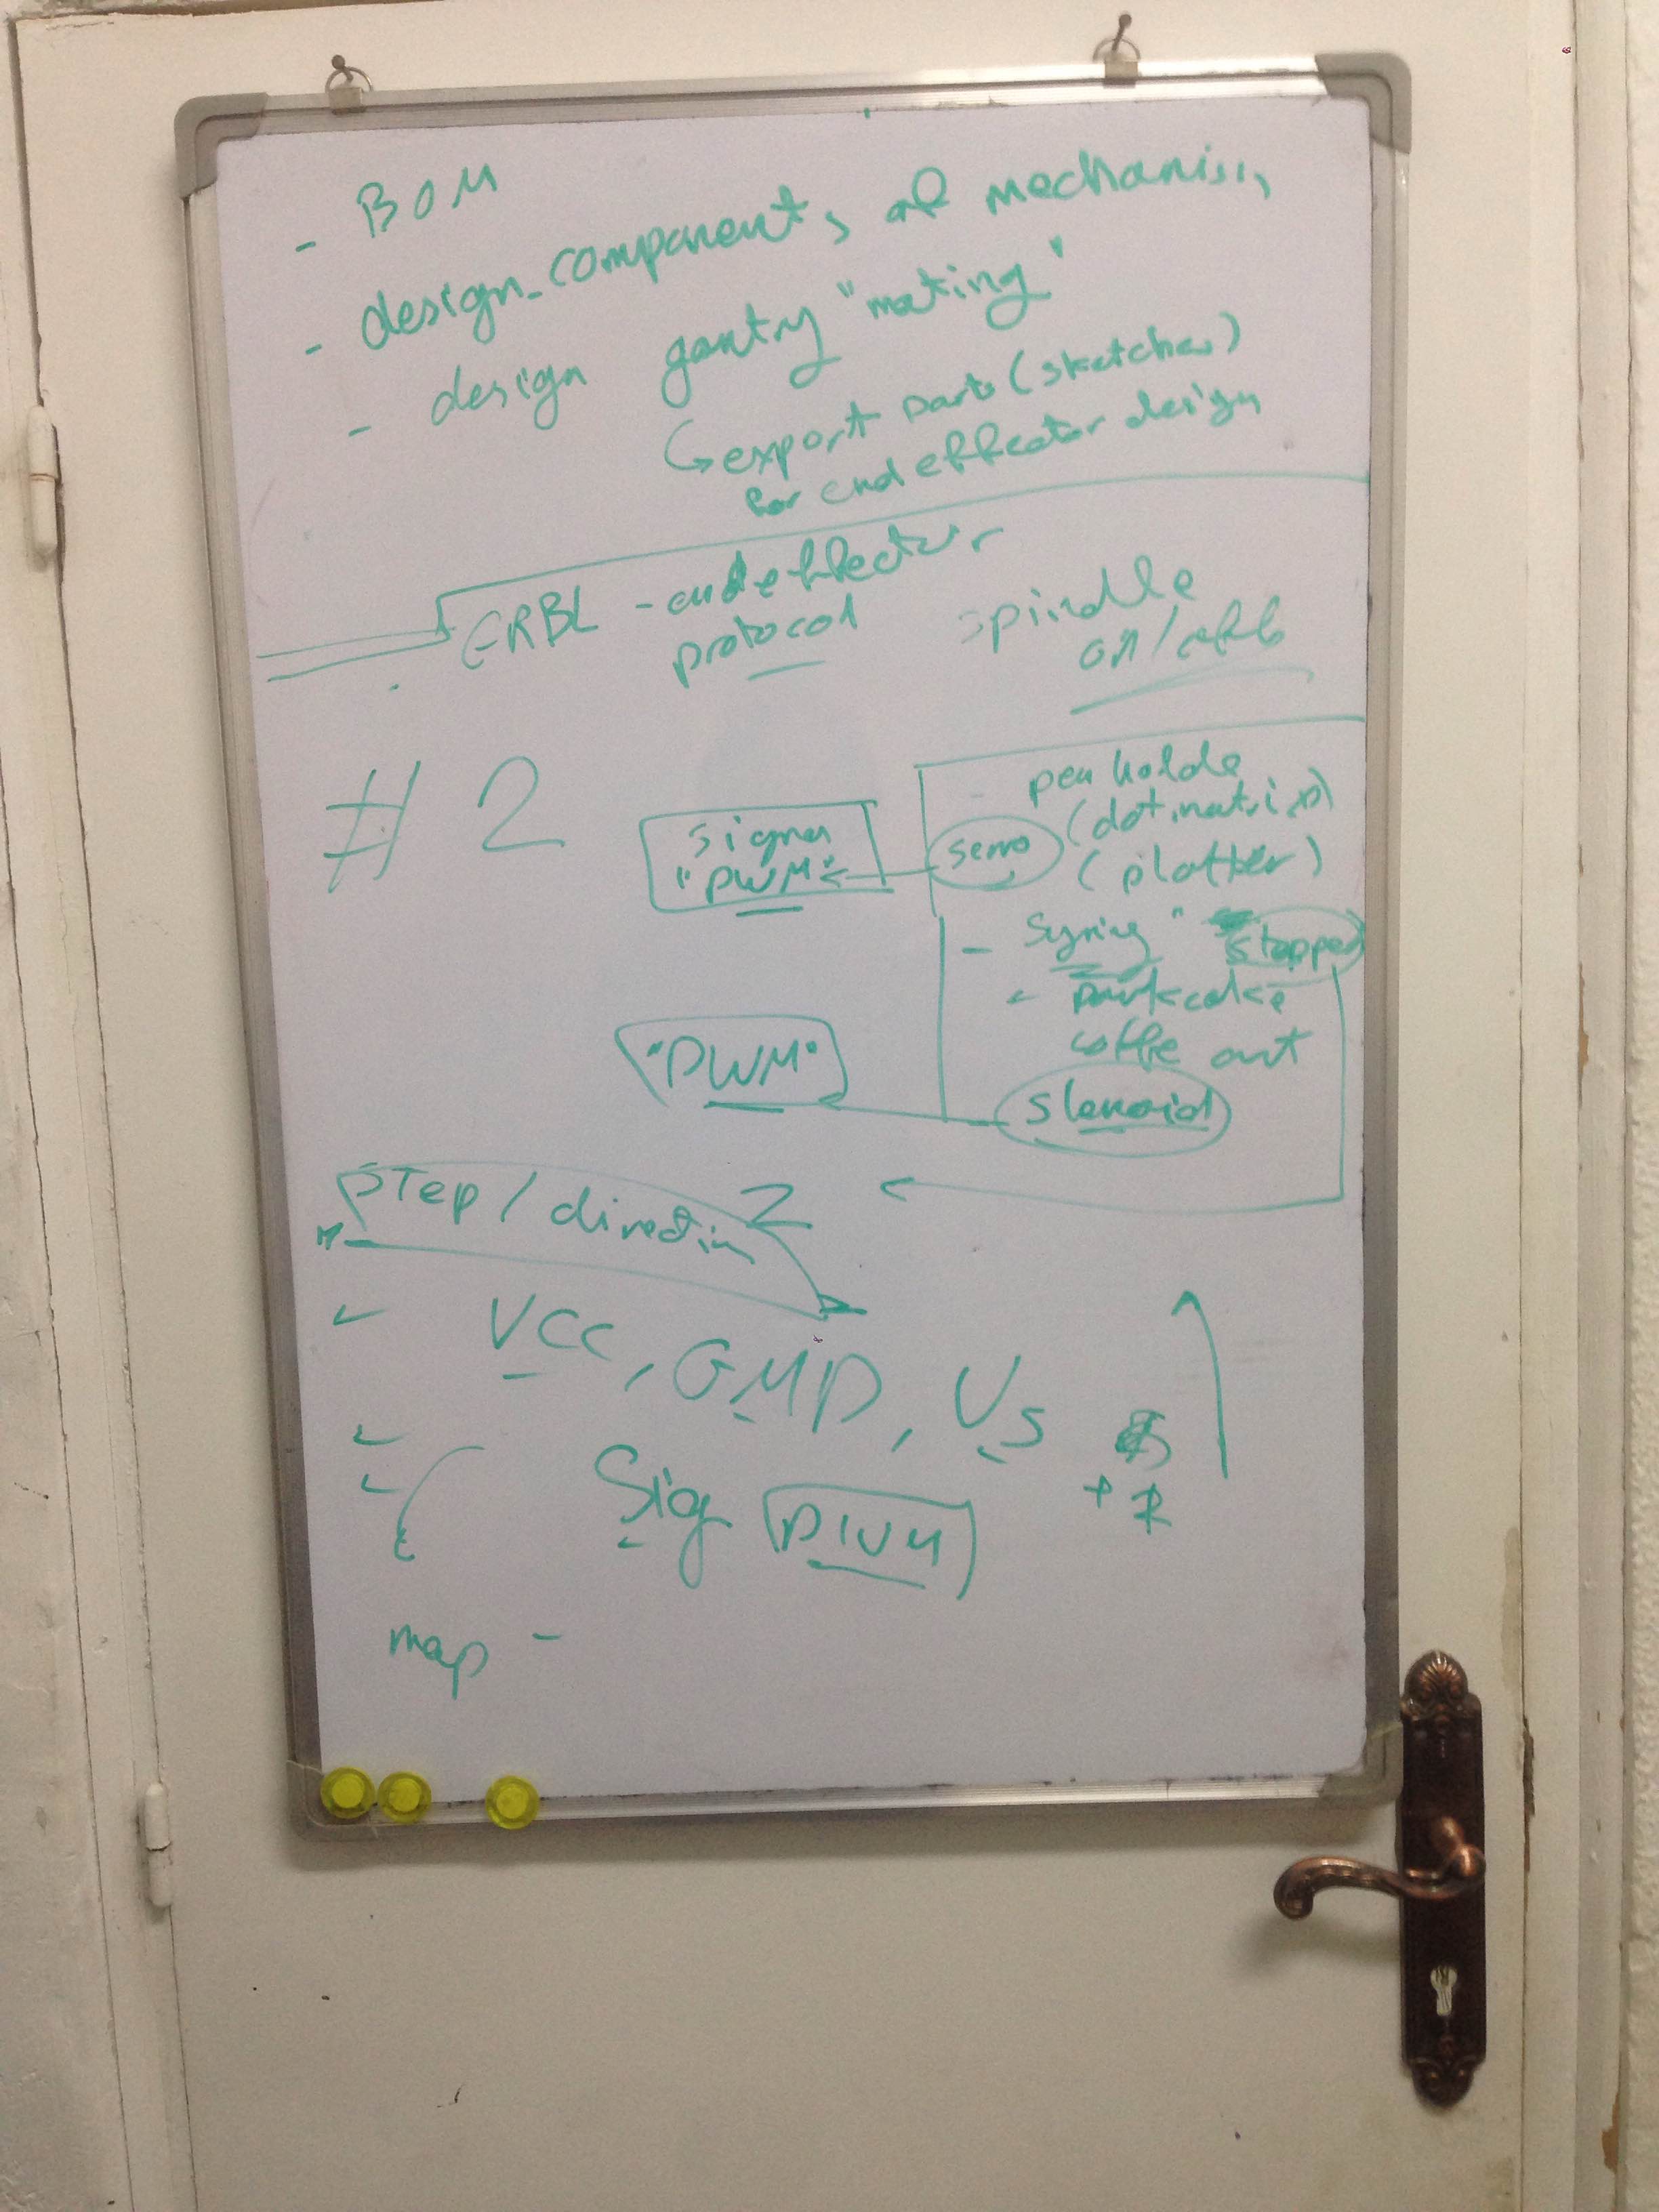 - BOM
- design component, of mechanism
- design gantry "mating"
export parts (sketches)
for end effector design
GRBL - end effector
protocol
spindle
on/off
# 2
Signal
"PWM"
servo
pen holde
(dot matrix)
(plotter)
- Syring " stepper
- pankcake
coffe art
"PWM"
Slenoid
STep / direction
Z
VCC, GND, Vs
Sig PWM
+
map -